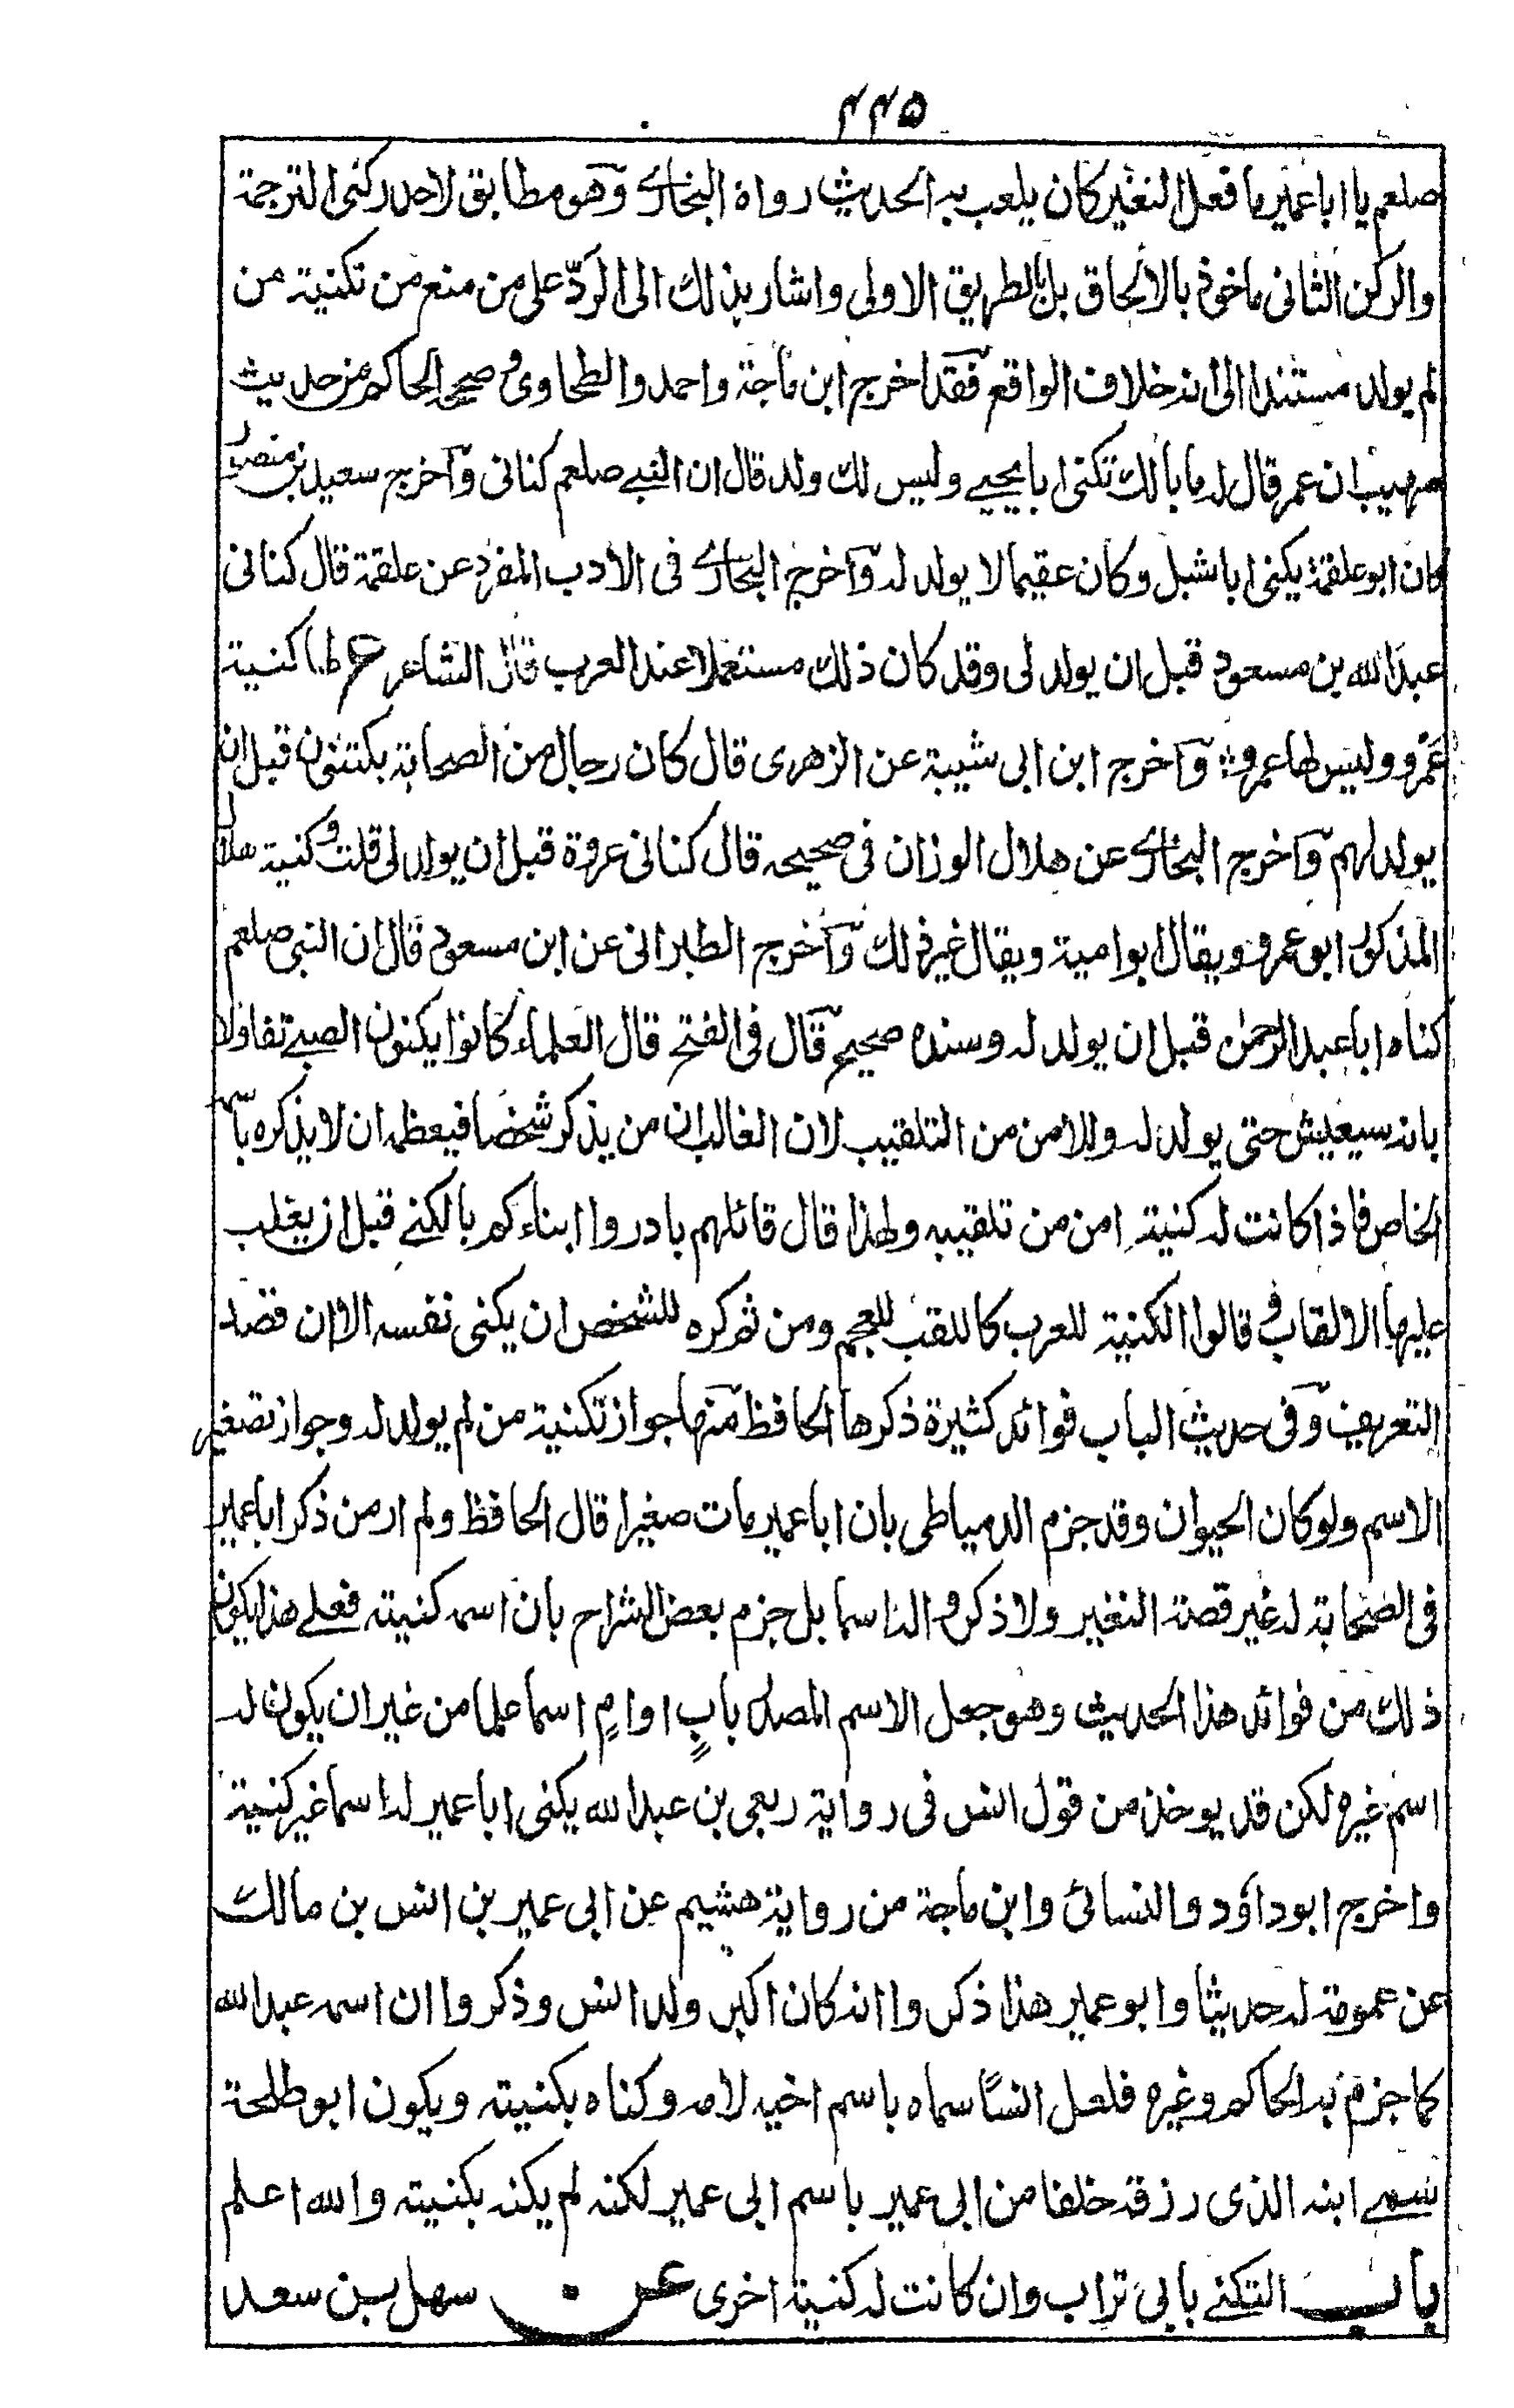 ۴۴۵
صلعم يا ابا عمير ما فعل النغير كان يلعب به الحديث رواه البخاري وهو مطابق لاحد ركني الترجمة
والركن الثاني ماخوذ بالالحاق بل بالطريق الاولى واشار بذلك الى الردّ على من منع من تكنية من
لم يولد مستندا الى انه خلاف الواقع فقد اخرج ابن ماجة واحمد والطحاوى وصححه الحاكم من حديث
صهيب ان عمر قال له ما بالك تكنى ابا يحيى وليس لك ولد قال ان النبي صلعم كناني وآخرج سعيد بن منصور
كان ابو علقمة يكنى ابا شبل وكان عقيما لا يولد له وآخرج البخاري فى الأدب المفرد عن علقمة قال كنانى
عبد الله بن مسعود قبل ان يولد لى وقد كان ذلك مستعملا عند العرب قال الشاعر ع لها كنية
عمرو وليس لها عمرو وآخرج ابن ابى شيبة عن الزهرى قال كان رجال من الصحابة يكتنون قبل ان
يولد لهم وآخرج البخاري عن هلال الوزان فى صحيحه قال كنانى عروة قبل ان يولد لى قلت وكنية هلال
المذكور ابو عمرو ويقال ابو امية ويقال غير ذلك وآخرج الطبرانى عن ابن مسعود قال ان النبى صلعم
كناه ابا عبد الرحمن قبل ان يولد له وسنده صحيح قال فى الفتح قال العلماء كانوا يكنون الصبي تفاولا
بانه سيعيش حتى يولد له وللامن من التلقيب لان الغالب ان من يذكر شخصا فيعظمه ان لا يذكره باسمه
الخاص فاذا كانت له كنية امن من تلقيبه ولهذا قال قائلهم بادروا ابناءكم بالكنى قبل ان يغلب
عليها الالقاب وقالوا الكنية للعرب كاللقب للعجم ومن ثم كره للشخص ان يكنى نفسه الا ان قصد
التعريف وفى حديث الباب فوائد كثيرة ذكرها الحافظ منها جواز تكنية من لم يولد له وجواز تصغير
الاسم ولو كان الحيوان وقد جزم الدمياطى بان ابا عمير مات صغيرا قال الحافظ ولم ار من ذكر ابا عمير
فى الصحابة له غير قصة النغير ولا ذكروا له اسما بل جزم بعض الشراح بان اسمه كنيته فعلى هذا يكون
ذلك من فوائد هذا الحديث وهو جعل الاسم المصدر بابٍ او امٍ اسما علما من غير ان يكون له
اسم غيره لكن قد يوخذ من قول انس فى رواية ربعى بن عبد الله يكنى ابا عمير له اسما غير كنيته
واخرج ابو داؤد والنسائى وابن ماجة من رواية هشيم عن ابى عمير بن انس بن مالك
عن عمومة له حديثا وابو عمير هذا ذكروا انه كان اكبر ولد انس وذكروا ان اسمه عبد الله
كما جزم به الحاكم وغيره فلعل انسًا سماه باسم اخيه لامه وكناه بكنيته ويكون ابو طلحة
سمى ابنه الذى رزقه خلفا من ابى عمير باسم ابى عمير لكنه لم يكنه بكنيته والله اعلم
باب التكنى بابى تراب وان كانت له كنية اخرى عن سهل بن سعد